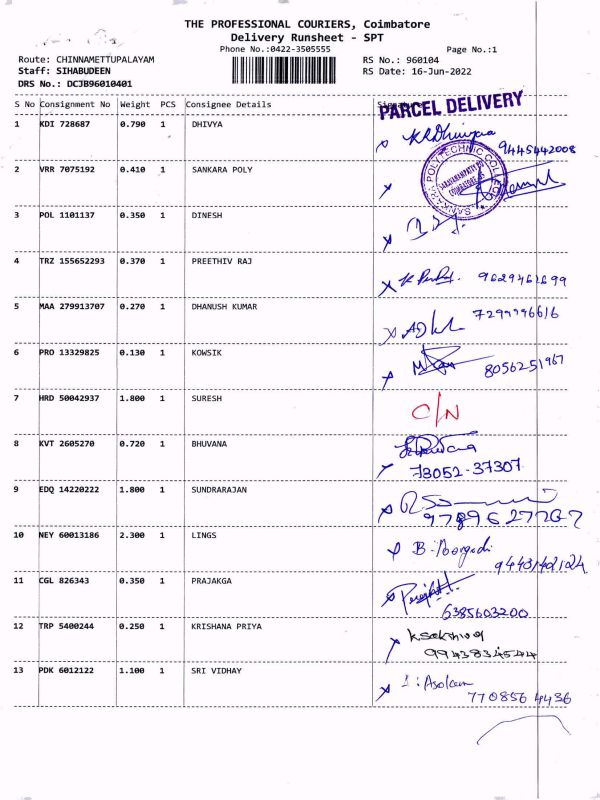 THE PROFESSIONAL COURIERS, Coimbatore
Delivery Runsheet - SPT
Phone No.:0422-3505555
Page No.:1
Route: CHINNAMETTUPALAYAM
RS No.: 960104
Staff: SIHABUDEEN
RS Date: 16-Jun-2022
DRS No.: DCJB96010401
S No Consignment No Weight PCS Consignee Details
PARCEL DELIVERY
1 KDI 728687 0.790 1 DHIVYA
9445442008
2 VRR 7075192 0.410 1 SANKARA POLY
SANKARA POLYTECHNIC COLLEGE
3 POL 1101137 0.350 1 DINESH
4 TRZ 155652293 0.370 1 PREETHIV RAJ
5 MAA 279913707 0.270 1 DHANUSH KUMAR
7299996616
6 PRO 13329825 0.130 1 KOWSIK
8056251967
7 HRD 50042937 1.800 1 SURESH
C/N
8 KVT 2605270 0.720 1 BHUVANA
73052-37307
9 EDQ 14220222 1.800 1 SUNDRARAJAN
10 NEY 60013186 2.300 1 LINGS
11 CGL 826343 0.350 1 PRAJAKGA
6385603200
12 TRP 5400244 0.250 1 KRISHANA PRIYA
13 PDK 6012122 1.100 1 SRI VIDHAY
770856 4436